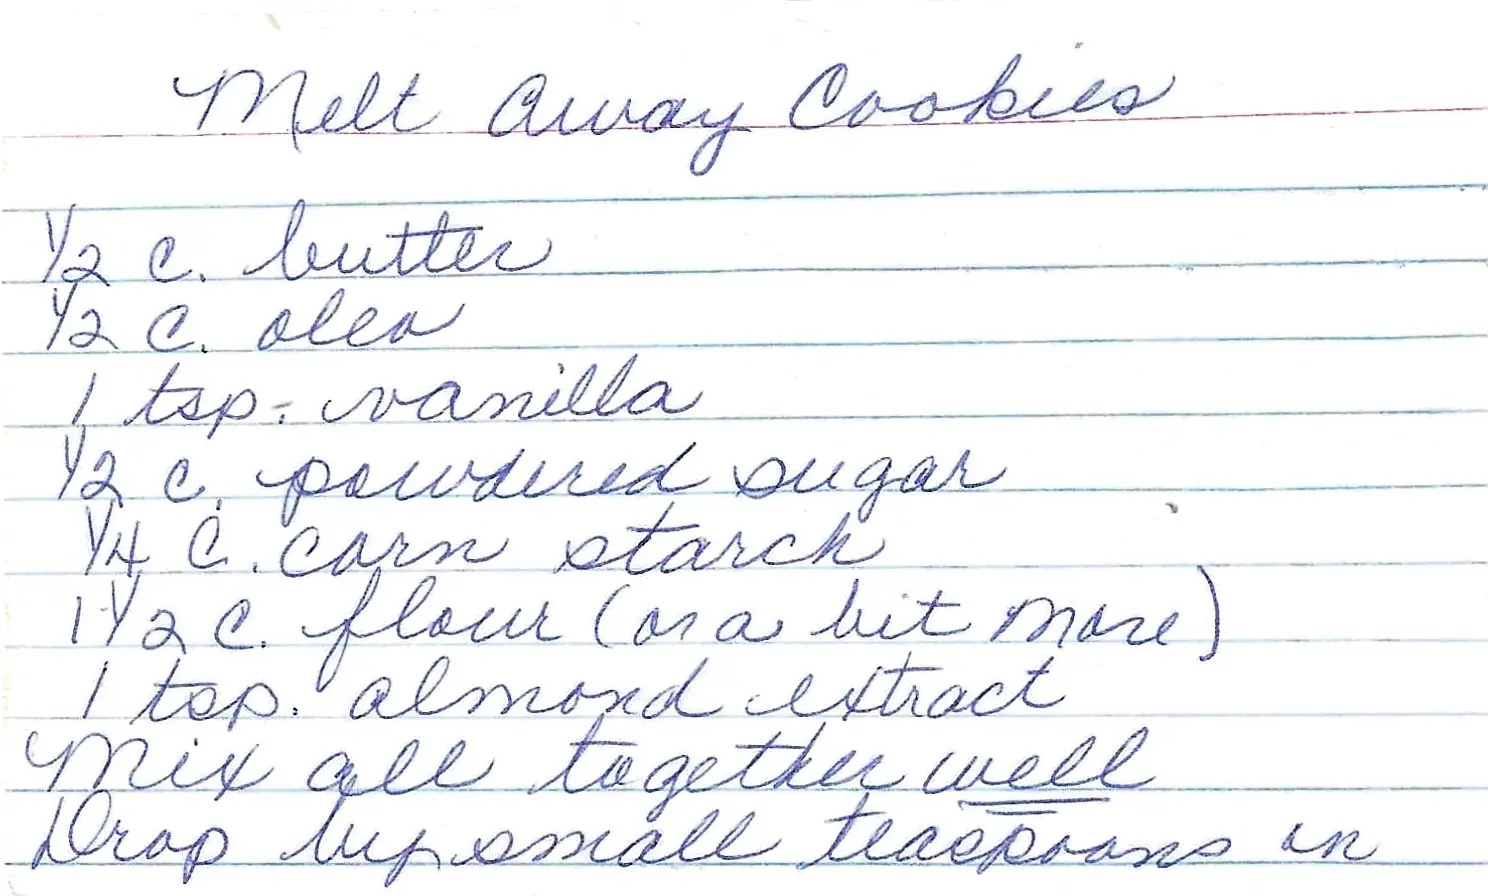 Melt Away Cookies
1/2 c. butter
1/2 c. oleo
1 tsp. vanilla
1/2 c. powdered sugar
1/4 c. corn starch
1 1/2 c. flour (or a bit more)
1 tsp. almond extract
Mix all together well
Drop by small teaspoons on